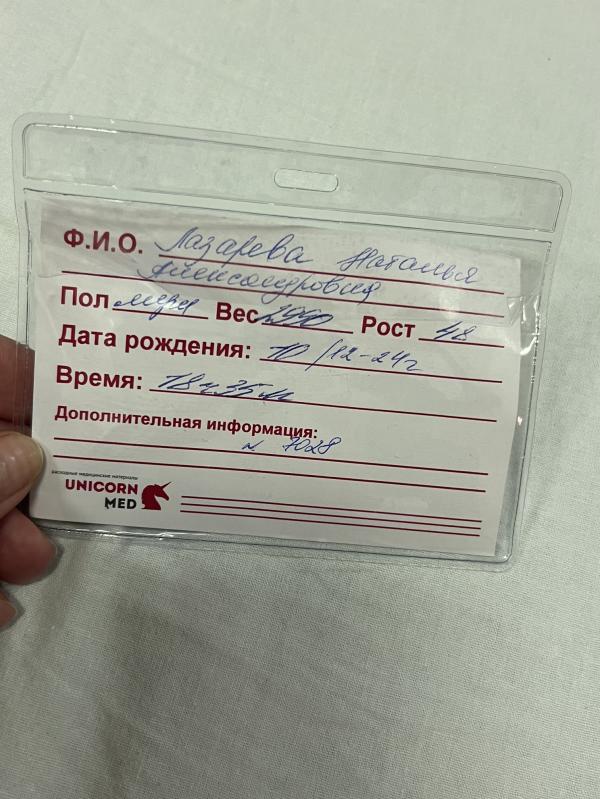 Ф.И.О. Лазарева Наталья
Александровна
Пол муж Вес 2990 Рост 48
Дата рождения: 10/12-24г
Время: 18ч 35м
Дополнительная информация:
и. 7028
расходные медицинские материалы
UNICORN
MED